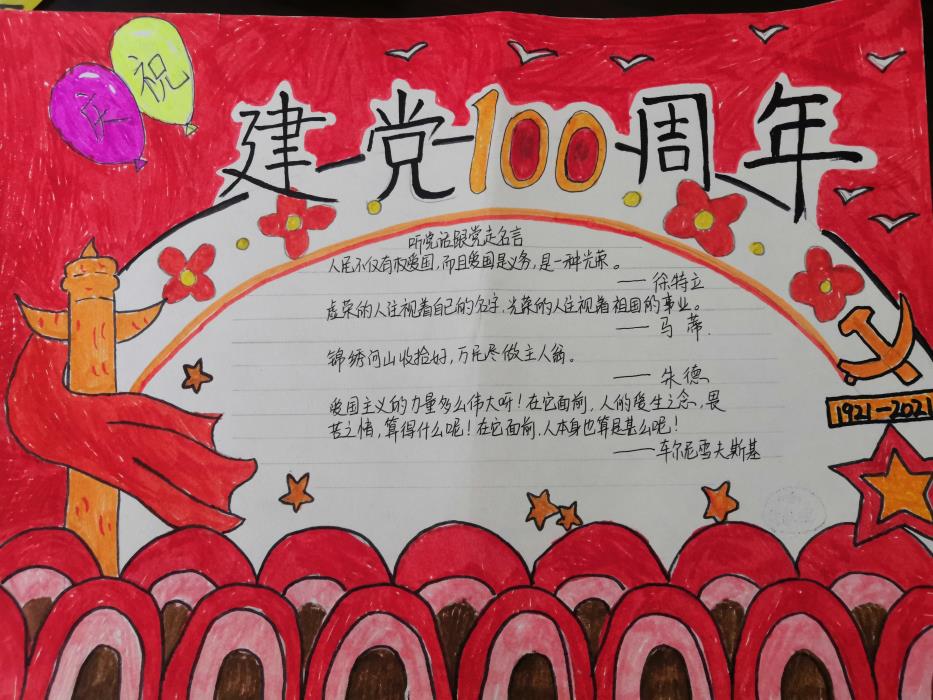 庆祝
建党100周年
听党话跟党走名言
人民不仅有权爱国,而且爱国是义务,是一种光荣。
——徐特立
虚荣的人注视着自己的名字,光荣的人注视着祖国的事业。
——马蒂.
锦绣河山收拾好,万民尽做主人翁。
——朱德
爱国主义的力量多么伟大呀!在它面前,人的爱生之念,畏
苦之情,算得什么呢!在它面前,人本身也算是甚么呢!
——车尔尼雪夫斯基
1921-2021